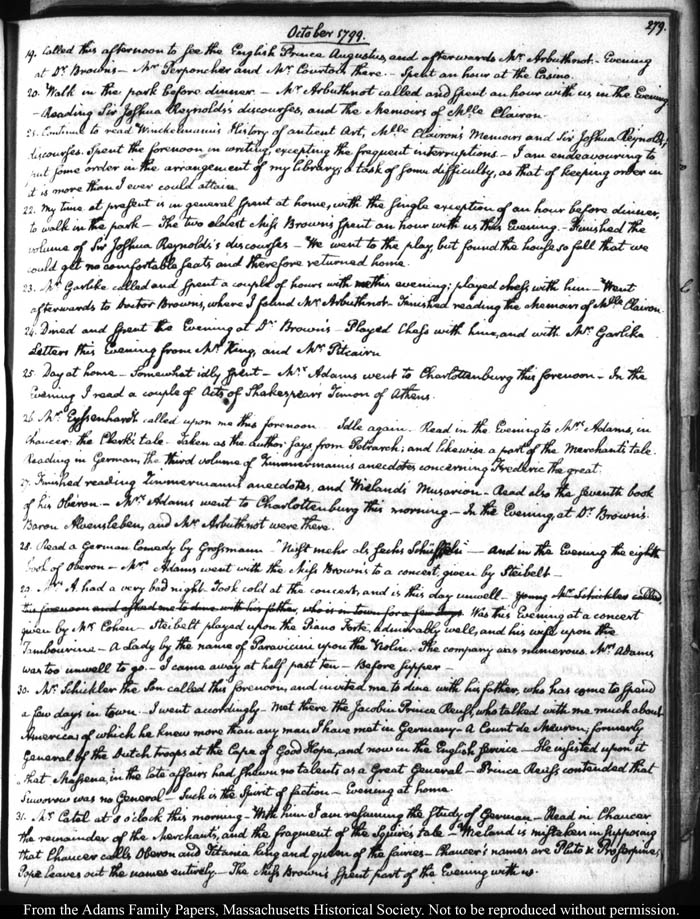 October 1799.
279.
19. Called this afternoon to see the English Prince Augustus, and afterwards Mr. Arbuthnot. Evening
at Dr. Brown's — Mr. Perponcher and Mr. Courton there. — Spent an hour at the Casino.
20. Walk in the park before dinner — Mr. Arbuthnot called and spent an hour with us in the Evening
— Reading Sir Joshua Reynolds's discourses, and the Memoirs of Mlle Clairon.
21. Continue to read Winckelmann's History of antient Art, Mlle Clairon's Memoirs and Sir Joshua Reynolds's
discourses. Spent the forenoon in writing, excepting the frequent interruptions — I am endeavouring to
put some order in the arrangement of my library; a task of some difficulty, as that of keeping order in
it is more than I ever could attain.
22. My time at present is in general spent at home, with the single exception of an hour before dinner,
to walk in the park — The two eldest Miss Brown's spent an hour with us this Evening. Finished the
volume of Sir Joshua Reynolds's discourses — We went to the play, but found the house so full that we
could get no comfortable seats and therefore returned home.
23. Mr. Garlike called and spent a couple of hours with me this evening; played chess with him — Went
afterwards to Doctor Brown's, where I found Mr. Arbuthnot. Finished reading the Memoirs of Mlle Clairon.
24. Dined and spent the Evening at Dr. Brown's — Played Chess with him, and with Mr. Garlike
Letters this Evening from Mr. King, and Mr. Pitcairn
25. Day at home — Somewhat idly spent — Mrs. Adams went to Charlottenburg this forenoon — In the
Evening I read a couple of Acts of Shakespear's Timon of Athens.
26. Mr. Eyssenhardt called upon me this forenoon. Idle again. Read in the Evening to Mrs. Adams, in
Chaucer: the Clerk's tale. Taken as the author says from Petrarch; and likewise a part of the Merchant's tale.
Reading in German, the third volume of Zimmermanns anecdotes concerning Frederic the great.
27. Finished reading Zimmermann's anecdotes, and Wieland's Musarion — Read also the seventh book
of his Oberon — Mrs. Adams went to Charlottenburg this morning — In the Evening at Dr. Brown's.
Baron Alvensleben, and Mr. Arbuthnot were there.
28. Read a German Comedy by Grossmann "Nicht mehr als sechs Schüsseln" — And in the Evening the eighth
book of Oberon — Mrs. Adams went with the Miss Brown's to a concert, given by Steibelt —
29. Mrs. A. had a very bad night. Took cold at the concert, and is this day unwell — young Mr. Schickler called
this forenoon and asked me to dine with his father, who is in town for a few days. Was this Evening at a concert
given by Mr. Cohen — Steibelt played upon the Piano Forte, admirably well, and his wife upon the
Tambourine — A lady by the name of Paravicini upon the Violin. The company was numerous. Mrs. Adams
was too unwell to go — I came away at half past ten — Before supper —
30. Mr. Schickler the Son called this forenoon, and invited me to dine with his father, who has come to spend
a few days in town — I went accordingly — Met there the Jacobin Prince Reuss, who talked with me much about
America; of which he knew more than any man I have met in Germany — A Count de Meuron; formerly
General of the Dutch troops at the Cape of Good Hope, and now in the English service — He insisted upon it
that Massena, in the late affairs had shewn no talents as a Great General — Prince Reuss contended that
Suworrow was no General — Such is the Spirit of faction — Evening at home.
31. Mr. Catel at 8 o'clock this morning — With him I am resuming the study of German — Read in Chaucer
the remainder of the Merchants, and the fragment of the Squires tale — Wieland is mistaken in supposing
that Chaucer calls Oberon and Titania king and queen of the fairies — Chaucer's names are Pluto & Proserpine;
Pope leaves out the names entirely. — The Miss Brown's spent part of the Evening with us.
From the Adams Family Papers, Massachusetts Historical Society. Not to be reproduced without permission.